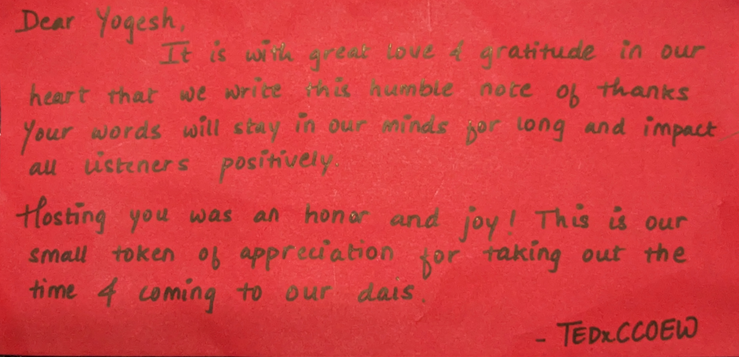 Dear Yogesh,
It is with great love & gratitude in our
heart that we write this humble note of thanks
Your words will stay in our minds for long and impact
all listeners positively.
Hosting you was an honor and joy! This is our
small token of appreciation for taking out the
time & coming to our dais.
- TEDxCCOEW